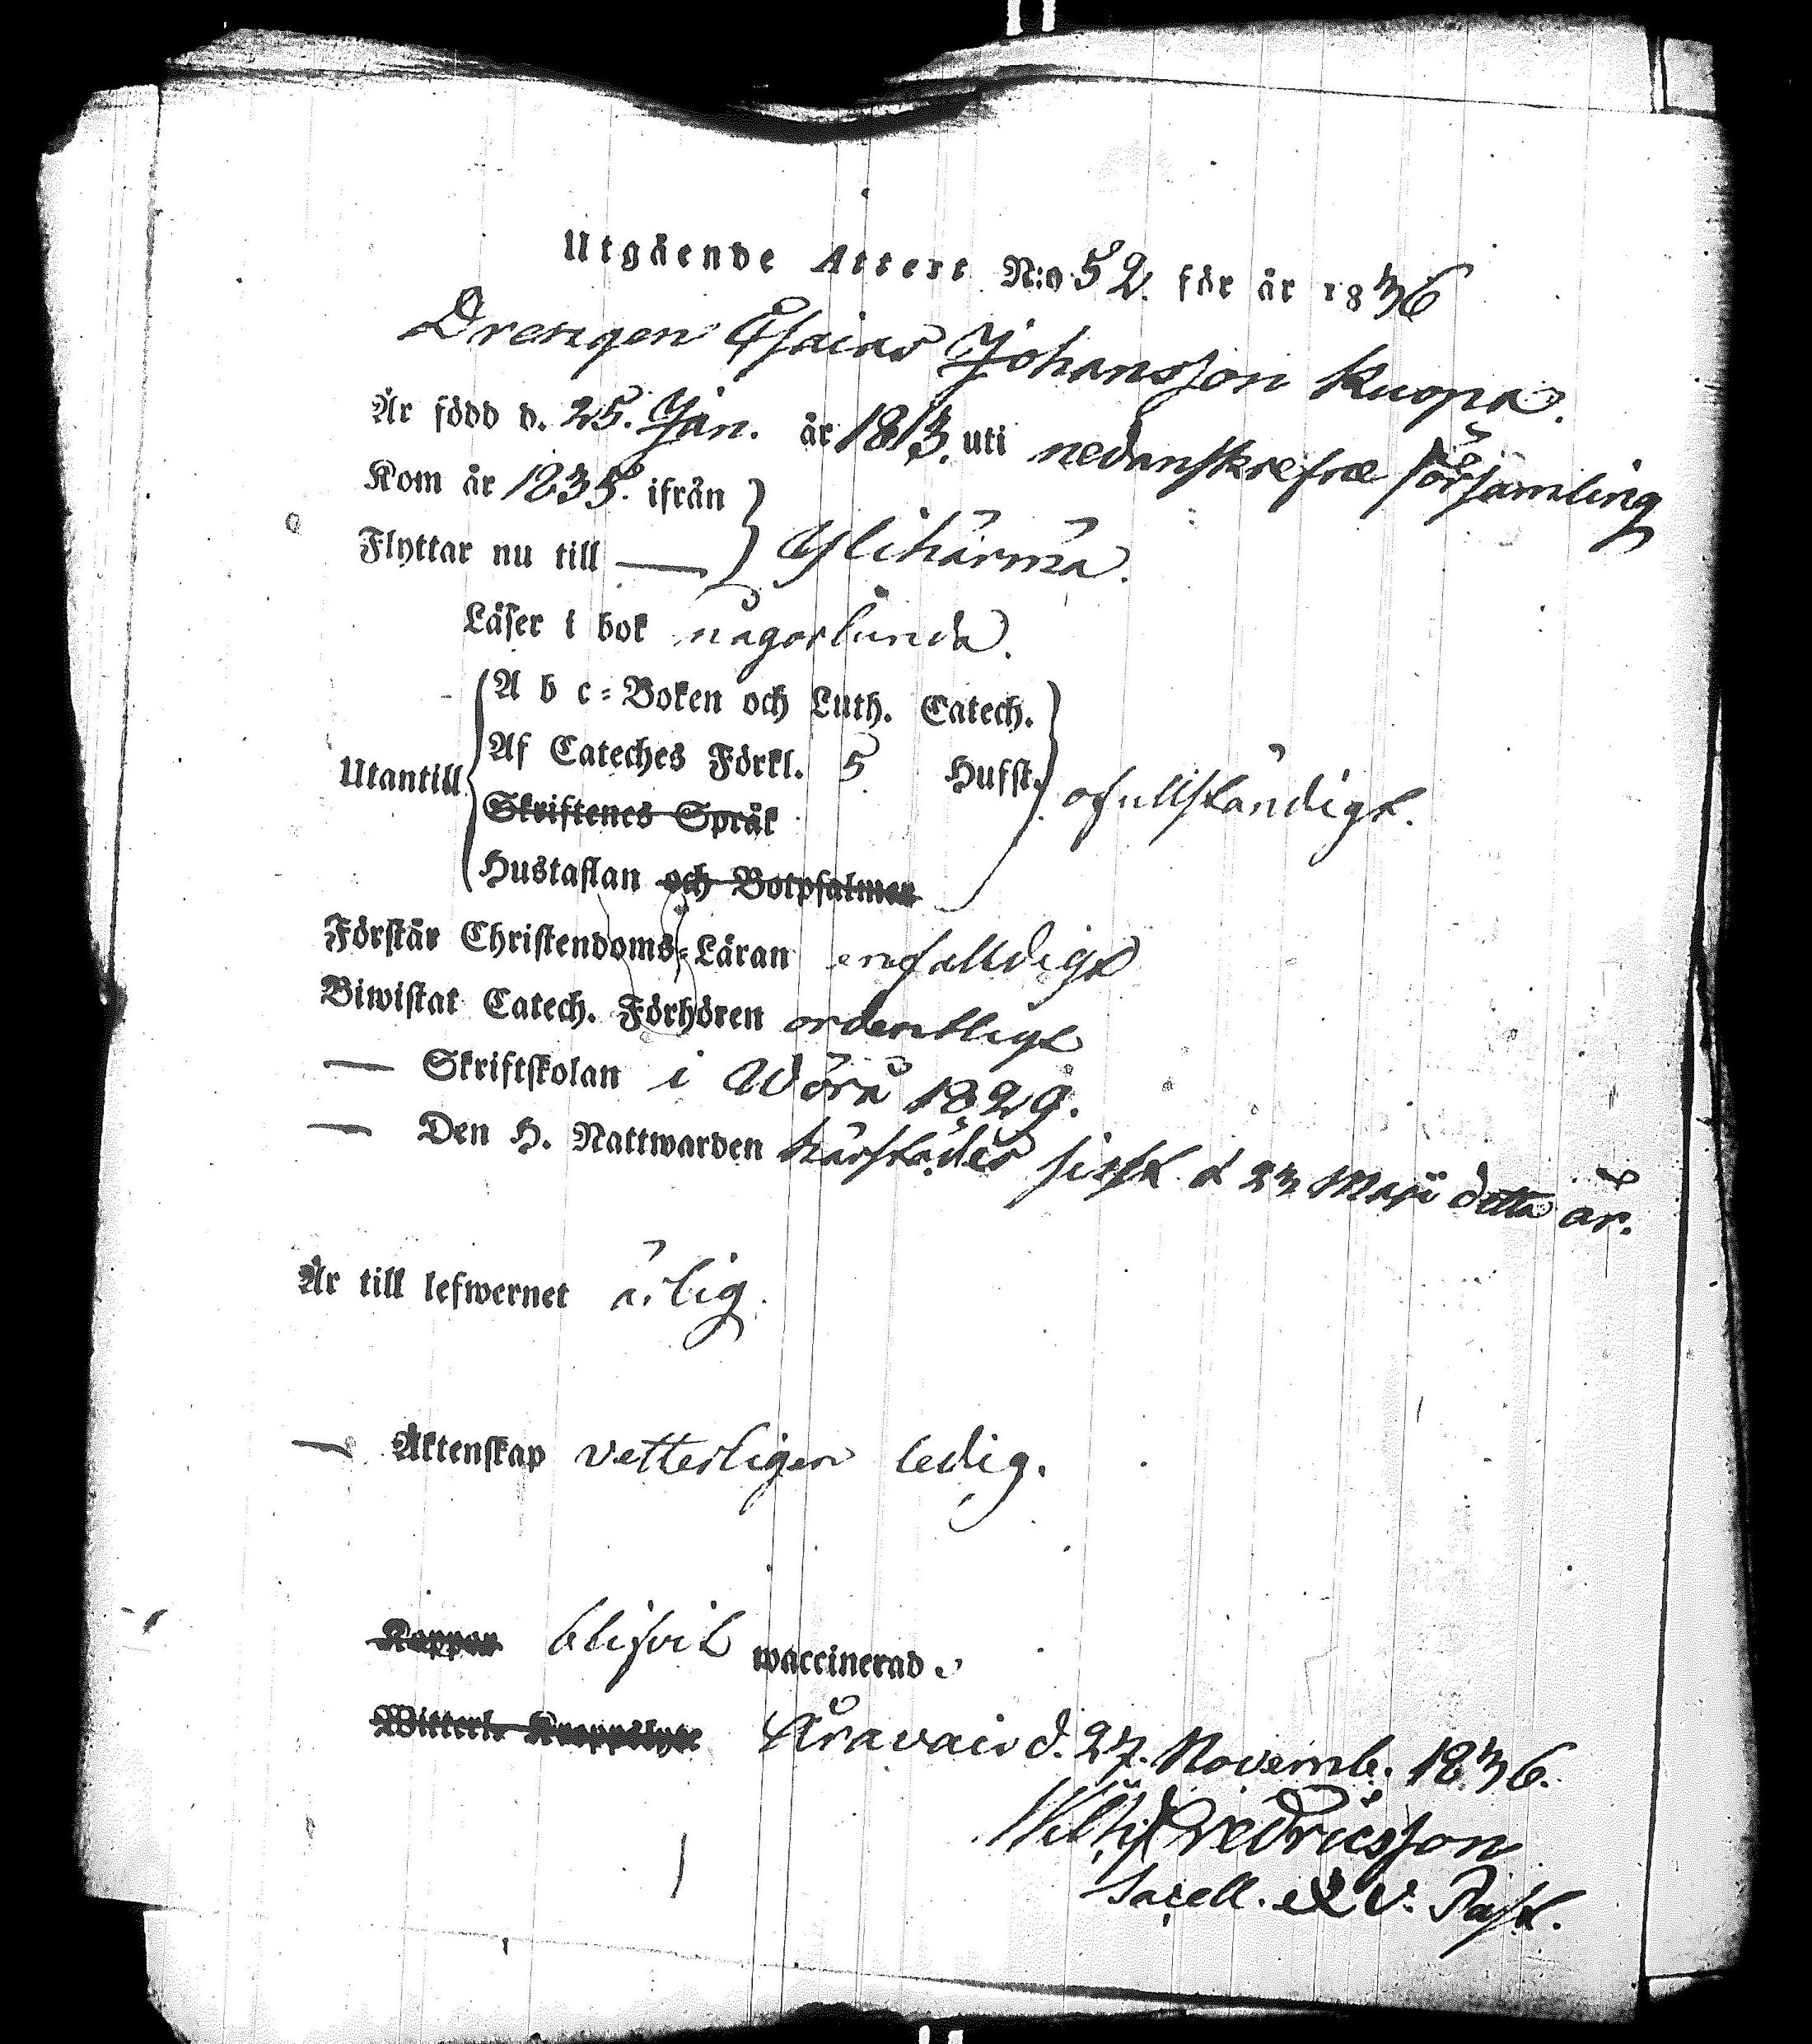 Utgående Attest N:o 52. för år 1836
Drengen Esaias Johansson Kuopa.
Är född d. 25. Jan. år 1813. uti nedanskrefne församling
Kom år 1835. ifrån
Flyttar nu till — Ylihärmä.
Läser i bok någorlunda.
A b c-Boken och Luth. Catech.
Af Cateches Förkl. 5 Hufst.
Utantill ofullständigt.
Skriftenes Språk
Hustaflan och Botpsalmen
Förstår Christendoms-Läran enfalldigt
Biwistat Catech. Förhören ordentligt
— Skriftskolan i Wörå 1829.
— Den H. Nattwarden härstädes sisst d 23 Maji detta år.
Är till lefwernet ärlig.
— Äktenskap vetterligen ledig.
Koppor blifvit waccinerad.
Witterl. Kroppslyte Åravais d. 27. Novemb. 1836.
Wilh. Fredricsson
Sacell. & V. Past.